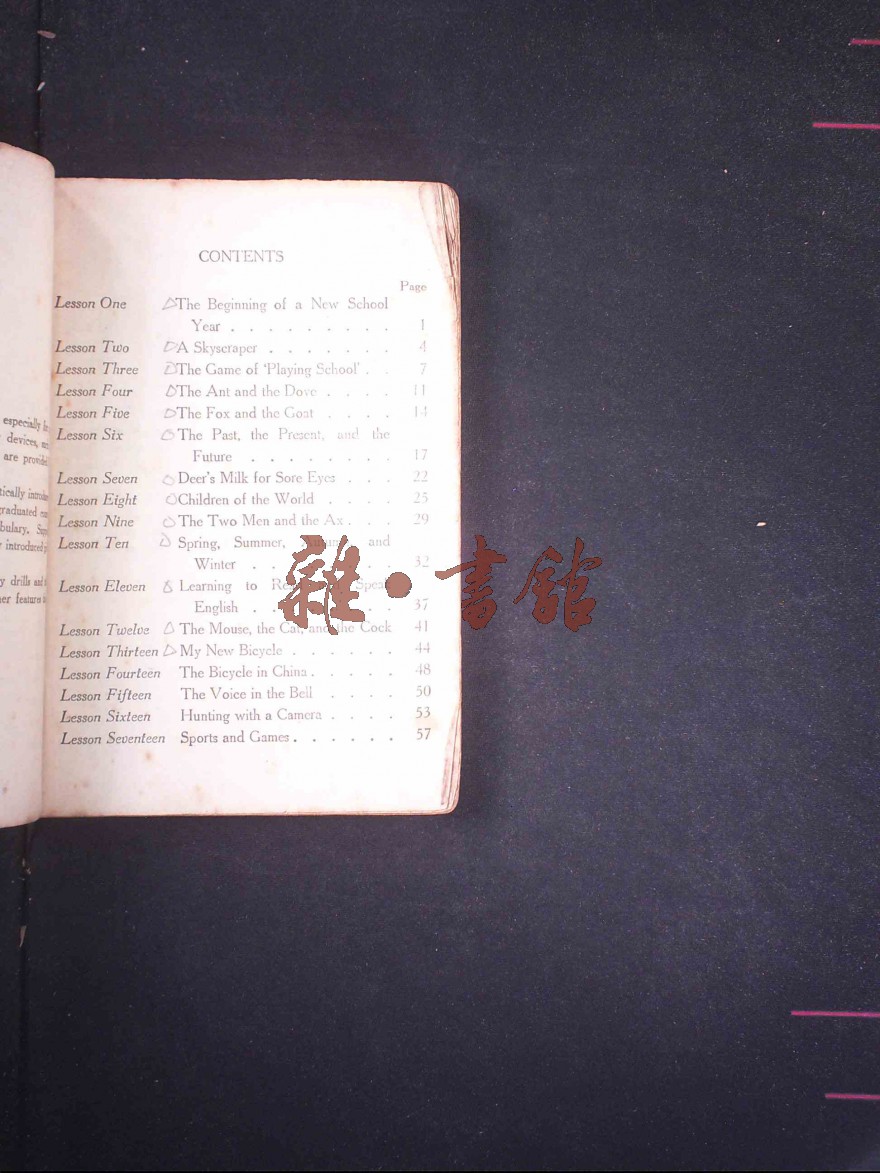 especially
devices,
are
tically
graduated
bulary,
introduced
y drills and
her features
CONTENTS
Page
Lesson One The Beginning of a New School
Year . . . . . . . . . 1
Lesson Two A Skyscraper . . . . . . . 4
Lesson Three The Game of 'Playing School' . . 7
Lesson Four The Ant and the Dove . . . . 11
Lesson Five The Fox and the Goat . . . . 14
Lesson Six The Past, the Present, and the
Future . . . . . . . . 17
Lesson Seven Deer's Milk for Sore Eyes . . . 22
Lesson Eight Children of the World . . . . 25
Lesson Nine The Two Men and the Ax . . . 29
Lesson Ten Spring, Summer, and
Winter . . . . . . . . 32
Lesson Eleven Learning to Speak
English . . . . . . . . 37
Lesson Twelve The Mouse, the Cat, and the Cock 41
Lesson Thirteen My New Bicycle . . . . . . 44
Lesson Fourteen The Bicycle in China . . . . . 48
Lesson Fifteen The Voice in the Bell . . . . 50
Lesson Sixteen Hunting with a Camera . . . . 53
Lesson Seventeen Sports and Games . . . . . . 57
雜·書館